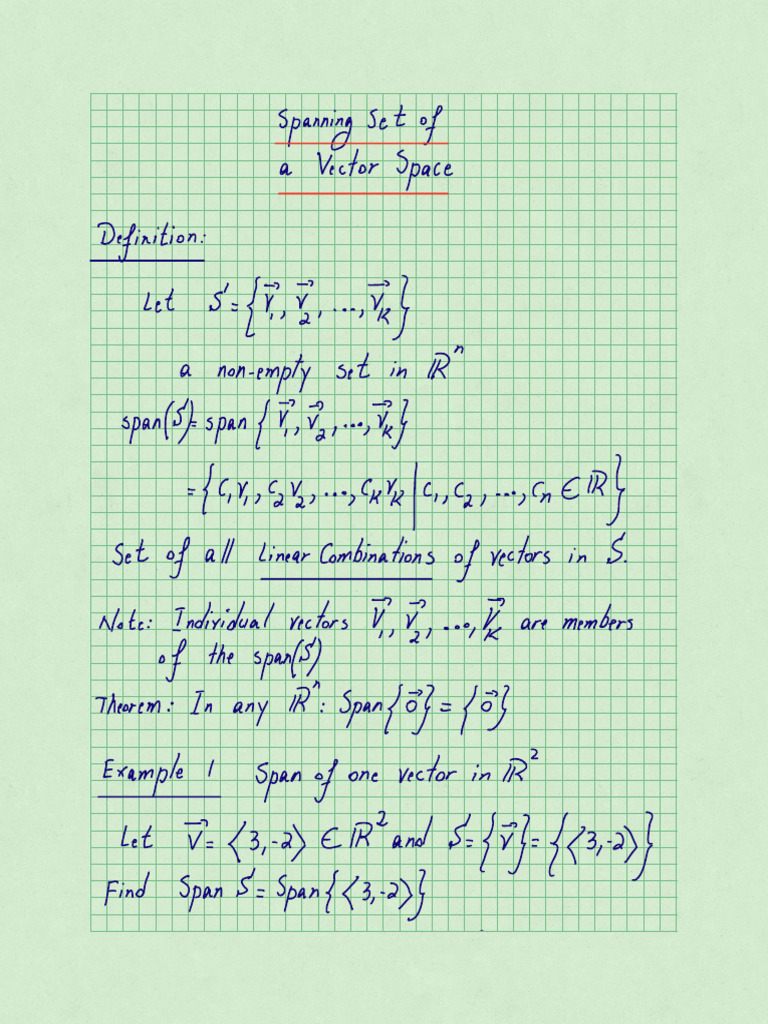 Spanning Set of
a Vector Space
Definition:
Let S = {v⃗₁, v⃗₂, ..., v⃗ₖ}
a non-empty set in ℝⁿ
span(S) = span {v⃗₁, v⃗₂, ..., v⃗ₖ}
= {c₁v₁, c₂v₂, ..., cₖvₖ | c₁, c₂, ..., cₙ ∈ ℝ}
Set of all Linear Combinations of vectors in S.
Note: Individual vectors v⃗₁, v⃗₂, ..., v⃗ₖ are members
of the span(S)
Theorem: In any ℝⁿ: Span{0⃗} = {0⃗}
Example 1 Span of one vector in ℝ²
Let v⃗ = ⟨3,-2⟩ ∈ ℝ² and S = {v⃗} = {⟨3,-2⟩}
Find Span S = Span{⟨3,-2⟩}